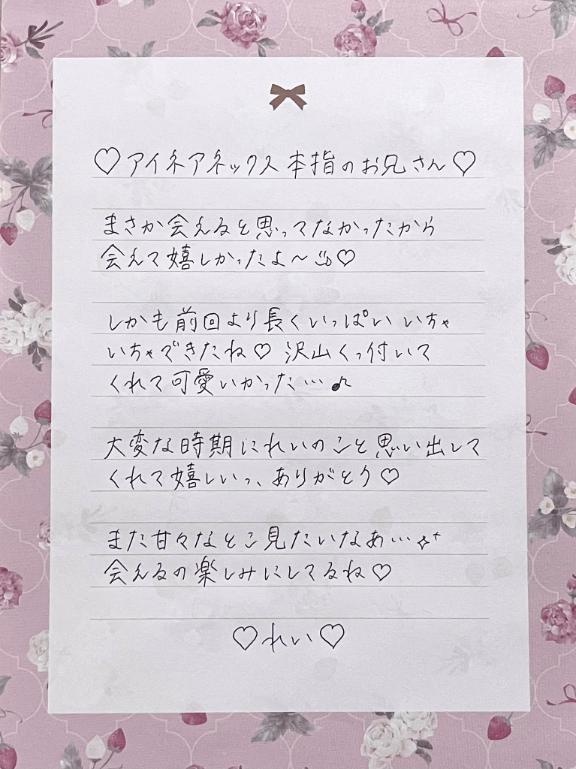 ♡アイネアネックス 本指のお兄さん♡
まさか会えると思ってなかったから
会えて嬉しかったよ〜♡
しかも前回より長くいっぱい いちゃ
いちゃできたね♡ 沢山くっ付いて
くれて可愛いかった…♪
大変な時期にれいのこと思い出して
くれて嬉しいっ、ありがとう♡
また甘々なとこ見たいなあ…
会えるの楽しみにしてるね♡
♡れい♡